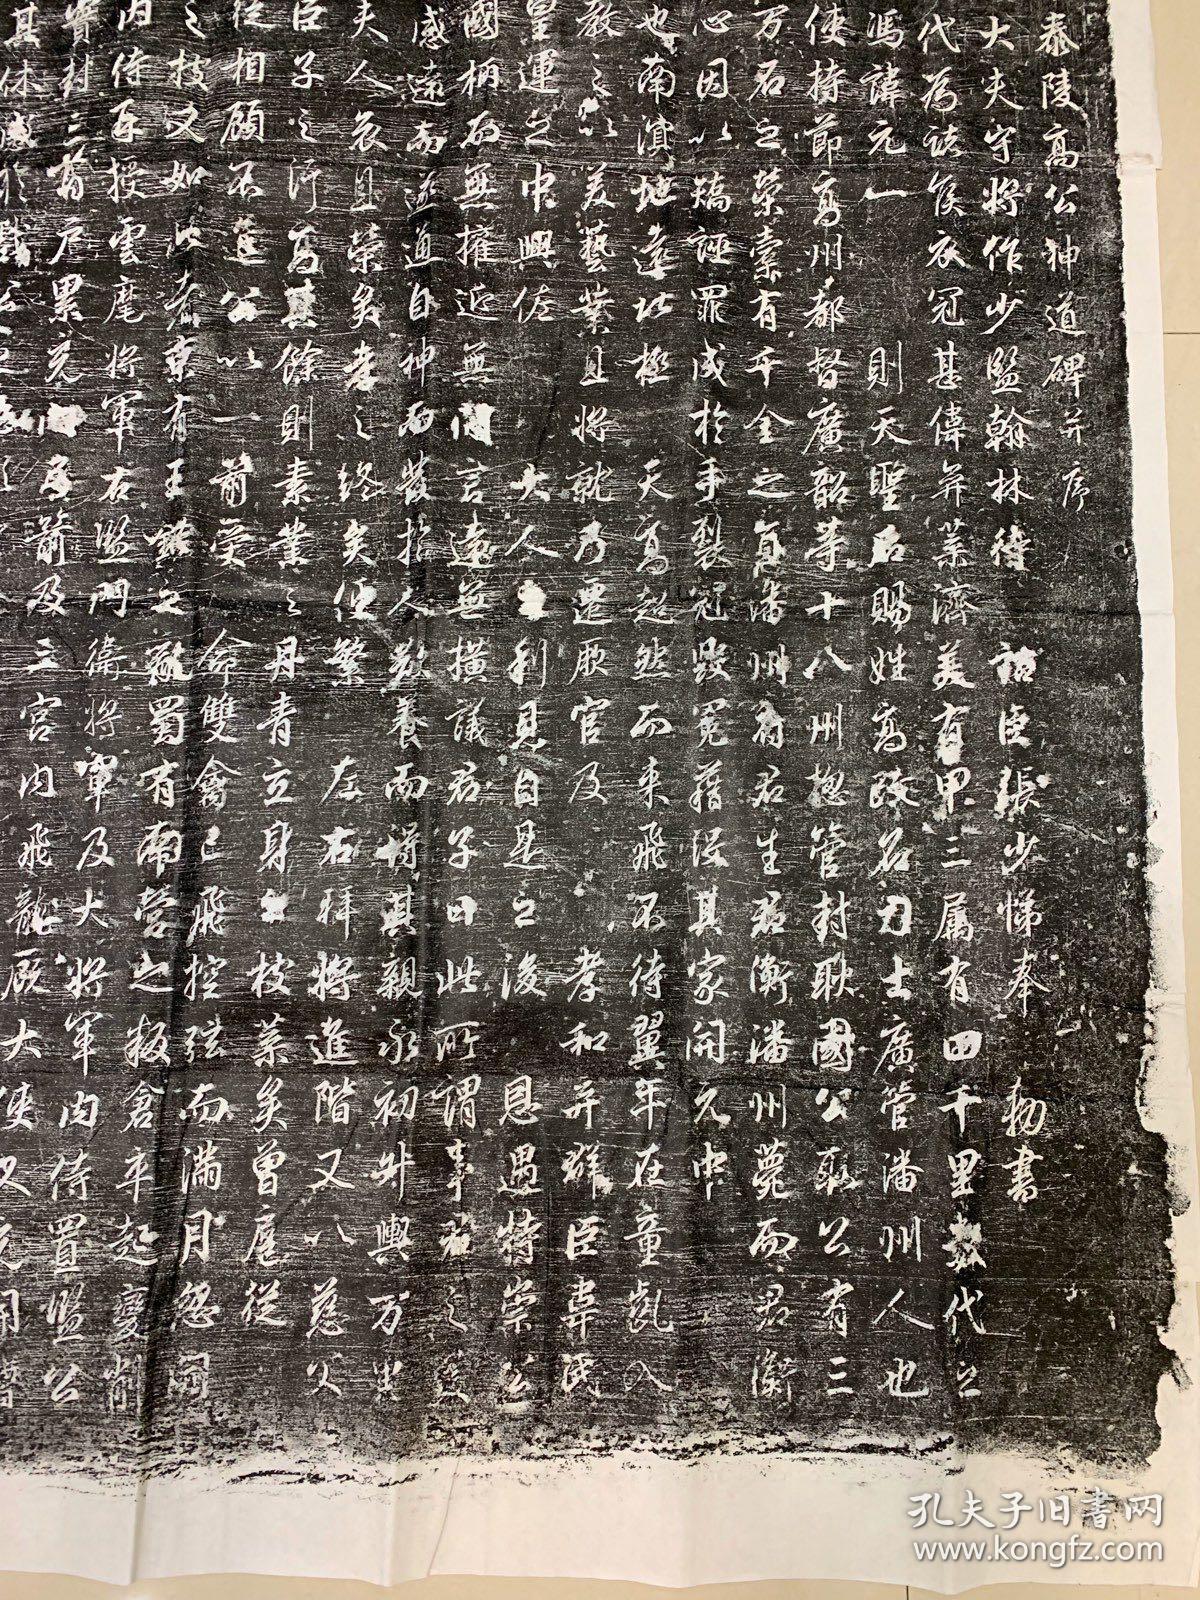 泰陵高公神道碑并序
大夫守將作少監翰林待 詔臣張少悌奉 勑書
代為諸侯衣冠甚偉弈葉濟美有甲三属有田千里數代之
馮諱元一 則天聖后賜姓高改名力士廣管潘州人也
使持節高州都督廣韶等十八州揔管封耿國公耿公有三
万石之榮橐有千金之直潘州府君生君衡潘州薨而君衡
心因以矯誣罪成於手裂冠毀冕藉沒其家開元中
也南溟地遠北極天高超然而来飛不待翼年在童齓入
教之以美藝業且將就乃遷厥官及 孝和弃群臣韋氏
皇運之中興佐 大人之利見自是之後 恩遇特崇公
國柄而無擁近無閒言遠無橫議君子曰此所謂事君之美
感遠而遂通自神而發指人欽養而得其親永初升輿万里
夫人衣且榮矣孝之終矣便繁 左右拜將進階又以慈父
臣子之所高其餘則素業之丹青立身之枝葉矣曾扈從
從相顧不進公以一箭受 命雙禽已飛控弦而滿月忽開
之技又如此者京有王鉷之亂蜀有南營之叛倉卒起變
内侍再授雲麾將軍右監門衛將軍及大將軍內侍置監公
實封三百戶累充内弓箭及三宮内飛龍廐大使
孔夫子旧書网
www.kongfz.com